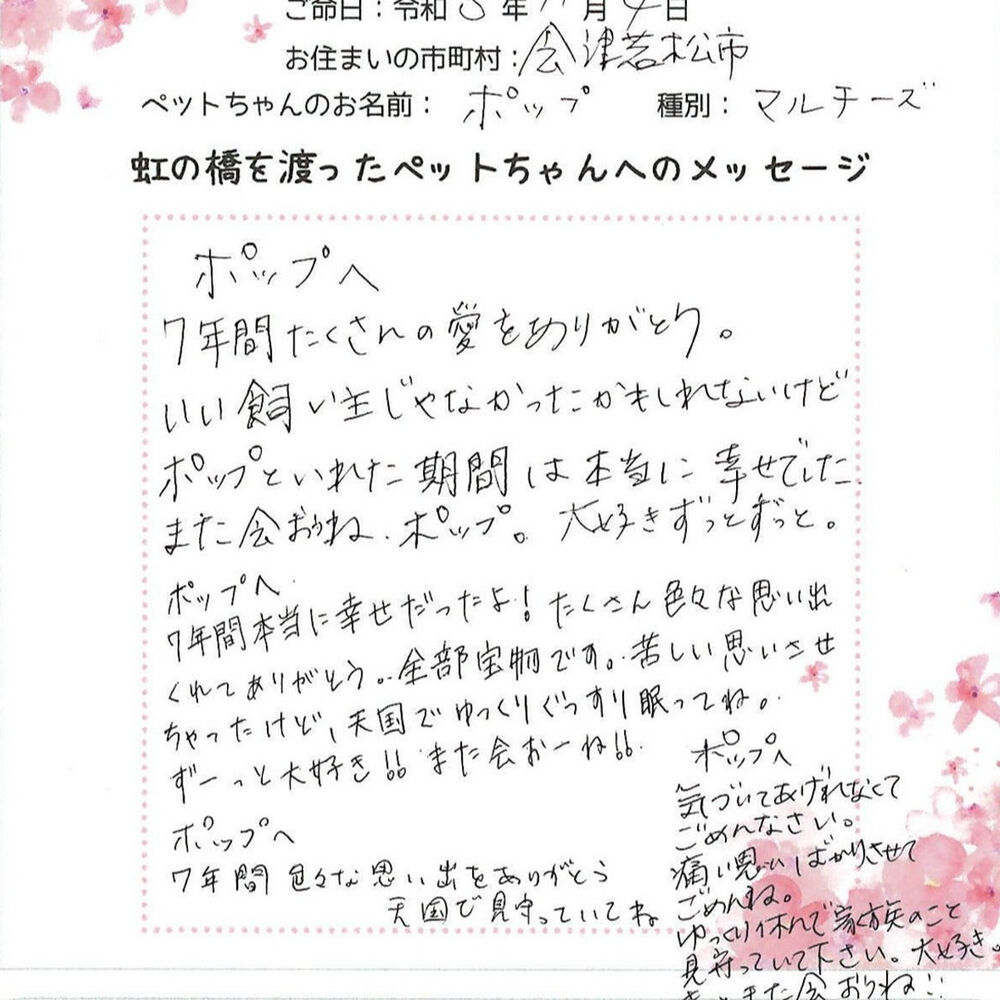 ご命日：令和 年11月4日
お住まいの市町村：会津若松市
ペットちゃんのお名前： ポップ 種別： マルチーズ
虹の橋を渡ったペットちゃんへのメッセージ
ポップへ
7年間たくさんの愛をありがとう。
いい飼い主じゃなかったかもしれないけど
ポップといれた期間は本当に幸せでした
また会おうね、ポップ。大好きずっとずっと。
ポップへ
7年間本当に幸せだったよ！たくさん色々な思い出
くれてありがとう。全部宝物です。苦しい思いさせ
ちゃったけど、天国でゆっくりぐっすり眠ってね。
ずーっと大好き!!また会おーね!!
ポップへ
7年間色々な思い出をありがとう
天国で見守っていてね
ポップへ
気づいてあげれなくて
ごめんなさい。
痛い思いばかりさせて
ごめんね。
ゆっくり休んで家族のこと
見守っていて下さい。大好き。
また会おうね!!